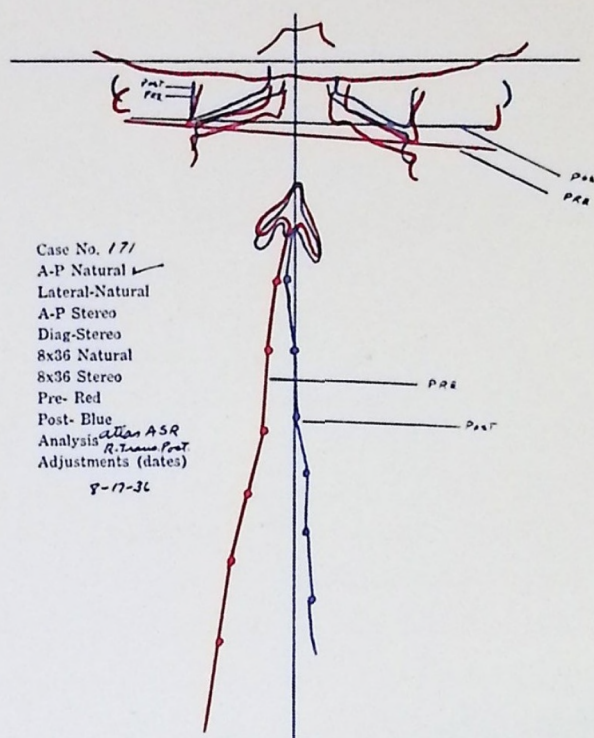 POST
PRE
POST
PRE
Case No. 171
A-P Natural ✓
Lateral-Natural
A-P Stereo
Diag-Stereo
8x36 Natural
8x36 Stereo
Pre- Red
Post- Blue
Analysis atlas ASR
R. Trans. Post.
Adjustments (dates)
8-17-36
PRE
POST